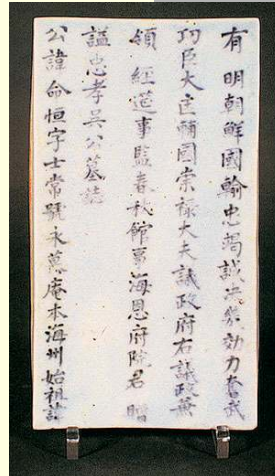 有明朝鮮國輸忠竭誠決策効力奮武
功臣大匡輔國崇祿大夫議政府右議政兼
領 經筵事監春秋館事海恩府院君 贈
謚忠孝吳公墓誌
公諱命恒字士常號永慕庵本海州始祖諱